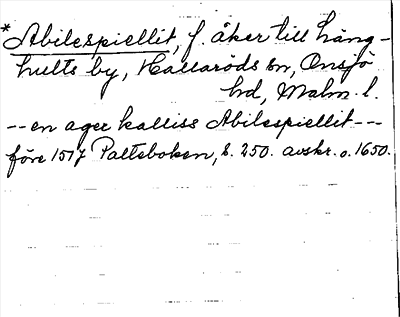 * Abilespiellit, f. åker till Häng-
hults by, Hallaröds sn, Onsjö
hd, Malm. l.
-- en ager kalliss Abilespiellit ---
före 1517 Palteboken, s. 250. avskr. o. 1650.